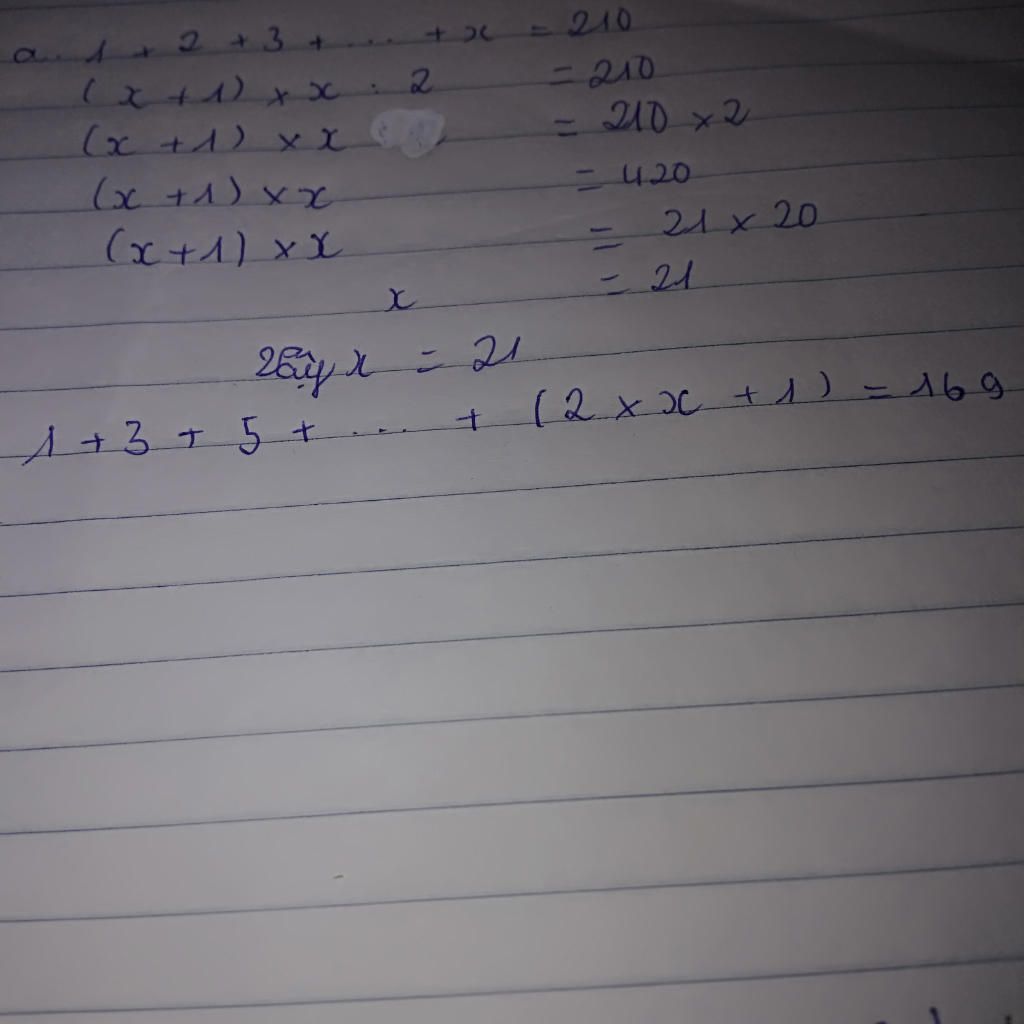 a. 1 + 2 + 3 + ... + x = 210
(x + 1) × x : 2 = 210
(x + 1) × x = 210 × 2
(x + 1) × x = 420
(x + 1) × x = 21 × 20
x = 21
Vậy x = 21
1 + 3 + 5 + ... + (2 × x + 1) = 169